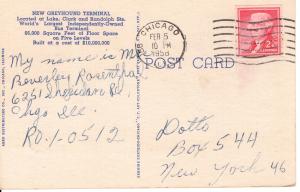 NEW GREYHOUND TERMINAL
Located at Lake, Clark and Randolph Sts.
World's Largest Independently-Owned
Bus Terminal
65,000 Square Feet of Floor Space
on Five Levels
Built at a cost of $10,000,000
CHICAGO
FEB 5
10 PM
1958
POST CARD
My name is Mrs
Beverley Rosenthal
6251 Sheridan Rd.
Chgo Ill
RO.1-0512
Dotto
Box 544
New York 46
2¢